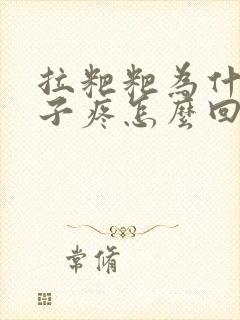 拉粑粑為什
子疼怎麼回
常脩